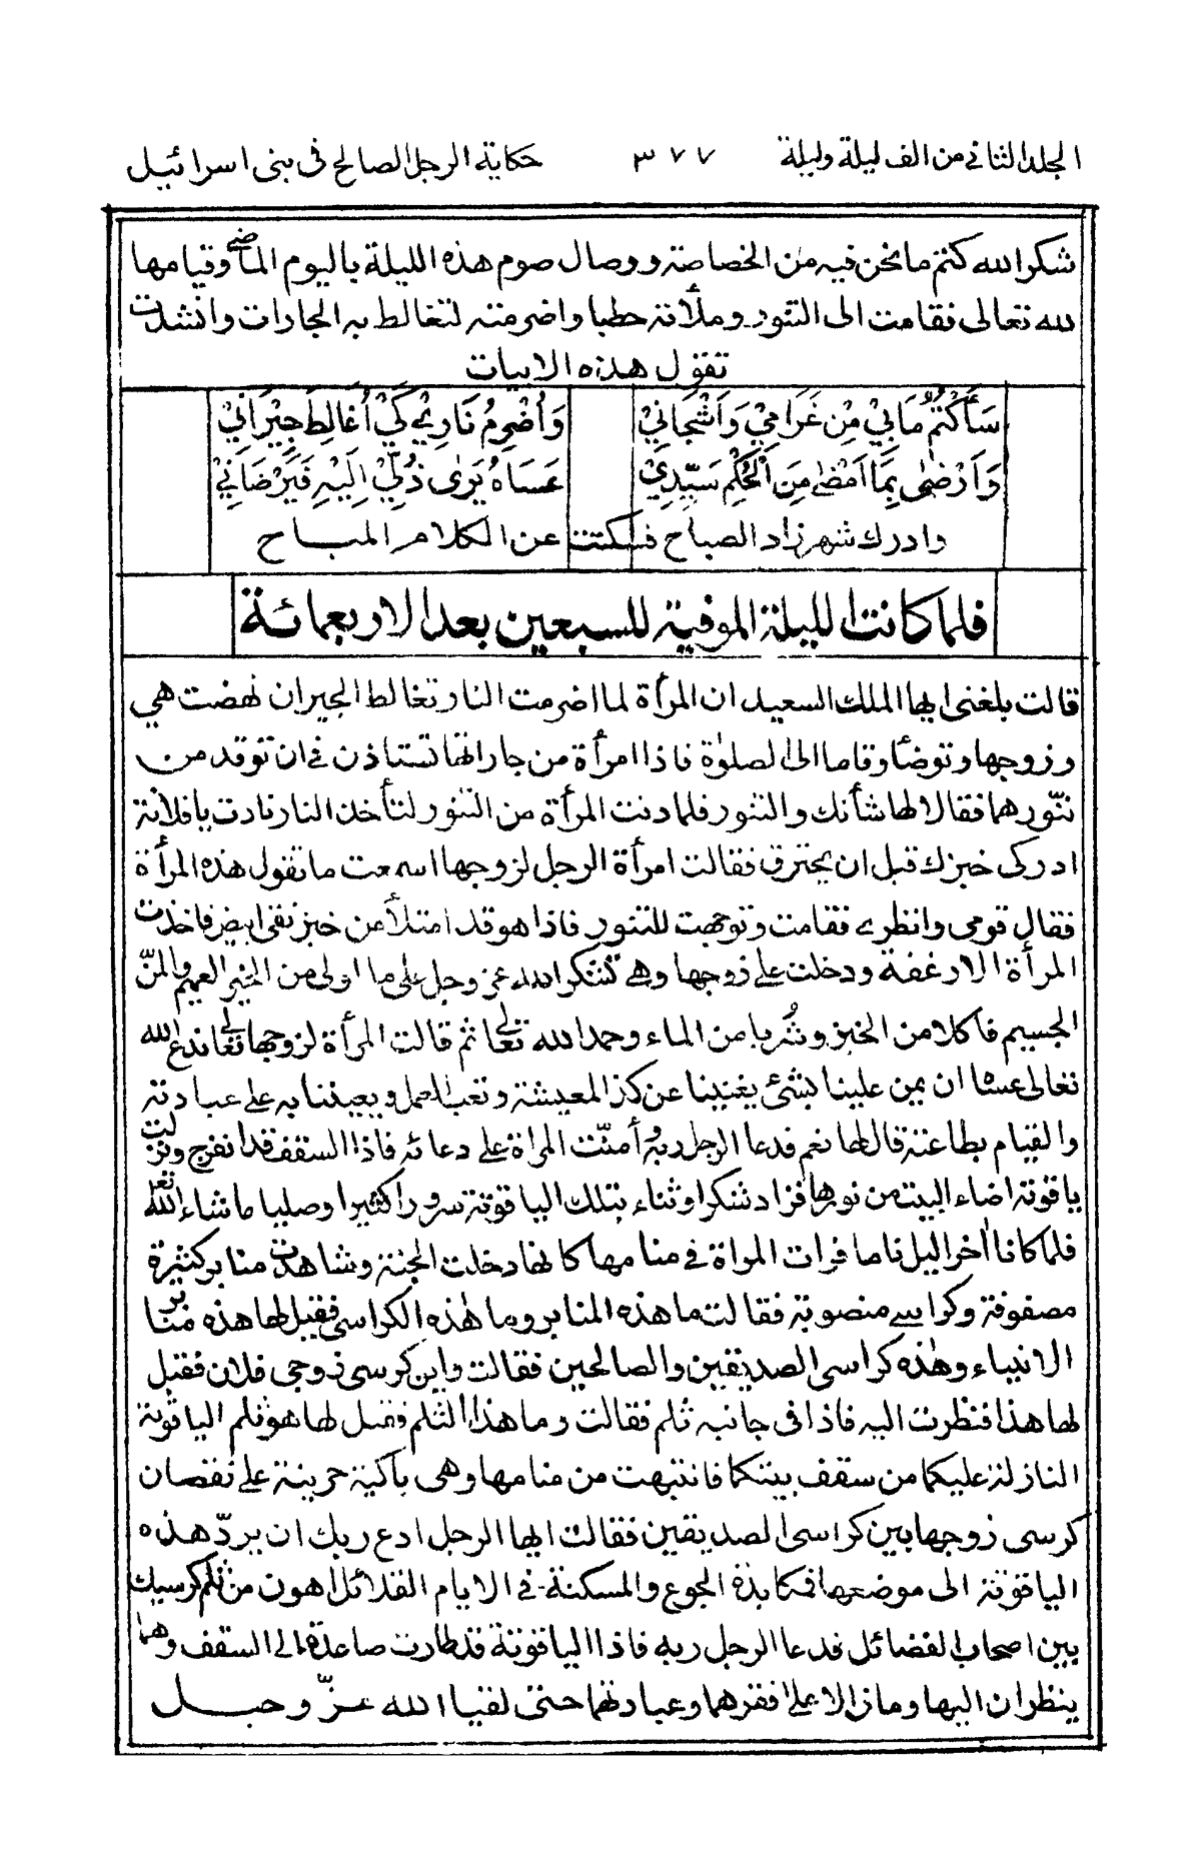 المجلد الثاني من الف ليلة وليلة ٣٧٧ حكاية الرجل الصالح في بني اسرائيل
شكرا لله كتم ما نحن فيه من الخصاصة ووصال صوم هذه الليلة باليوم الماضي وقيامها
لله تعالى فقامت الى التنور وملأته حطبا واضرمته لتغالط به الجارات وانشدت
تقول هذه الابيات
سَأَكْتُمُ مَابِيْ مِنْ غَرَامِيْ وَاَشْجَانِيْ وَاُضْرِمُ نَارِيْ كَيْ اُغَالِطَ جِيْرَانِيْ
وَاَرْضٰى بِمَا اَمْضٰى مِنَ الْحُكْمِ سَيِّدِيْ عَسَاهُ يَرٰى ذُلِّيْ اِلَيْهِ فَيَرْضَانِيْ
وادرك شهرزاد الصباح فسكتت عن الكلام المباح
فلما كانت الليلة الموفية للسبعين بعد الاربعمائة
قالت بلغني ايها الملك السعيد ان المرأة لما اضرمت النار تغالط الجيران نهضت هي
وزوجها وتوضأ وقاما الى الصلوٰة فاذا امرأة من جاراتها تستاذن في ان توقد من
تنّورهما فقالا لها شأنك والتنور فلما دنت المرأة من التنور لتأخذ النار نادت يا فلانة
ادركى خبزك قبل ان يحترق فقالت امرأة الرجل لزوجها اسمعت ما تقول هذه المرأة
فقال قومى وانظرى فقامت وتوجهت للتنور فاذا هو قد امتلأ من خبز نقى ابيض فاخذت
المرأة الارغفة ودخلت على زوجها وهي تشكر الله عز وجل على ما اولى من الخير العميم والمنّ
الجسيم فاكلا من الخبز وشربا من الماء وحمدا الله تعالى ثم قالت المرأة لزوجها تعالى ندع الله
تعالى عسا ان يمن علينا بشئ يغنينا عن كد المعيشة وتعب العمل ويعيننا به على عبادته
والقيام بطاعته قال لها نعم فدعا الرجل ربه وأمنّت المراة على دعائه فاذا السقف قد انفرج ونزلت
ياقوتة اضاء البيت من نورها فزاد شكرا وثناء بتلك الياقوتة سرورا كثيرا وصليا ما شاء الله تعالى
فلما كانا أخر اليل ناما فرات المراة في منامها كانها دخلت الجنة وشاهدت منابر كثيرة
مصفوفة وكراسى منصوبة فقالت ما هذه المنابر وما هٰذه الكراسى فقيل لها هذه منابر
الانبياء وهٰذه كراسى الصديقين والصالحين فقالت واين كرسى زوجى فلان فقيل
لها هذا فنظرت اليه فاذا فى جانبه ثلم فقالت وما هذا الثلم فقيل لها هو ثلم الياقوتة
النازلة عليكما من سقف بيتكما فانتبهت من منامها وهى باكية حزينة على نقصان
كرسى زوجها بين كراسى الصديقين فقالت ايها الرجل ادع ربك ان يردّ هذه
الياقوتة الى موضعها فمكابدة الجوع والمسكنة في الايام القلائل اهون من ثلم كرسيك
بين اصحاب الفضائل فدعا الرجل ربه فاذا الياقوتة قد طارت صاعدة الى السقف وهما
ينظران اليها وما زالا على فقرهما وعبادتهما حتى لقيا الله عزّ وجل